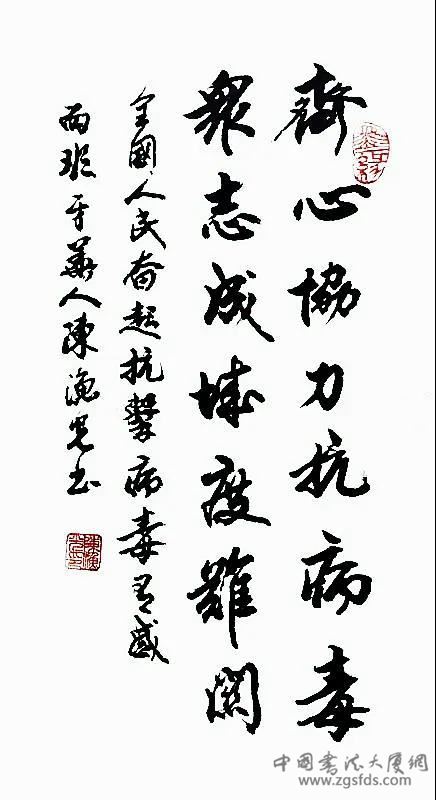 齊心協力抗病毒
眾志成城度難關
全國人民奮起抗擊病毒有感
西班牙華人陳漁光書
中国書法大厦網
www.zgsfds.com